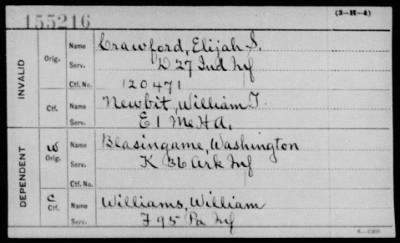 155216
(3-H-4)
INVALID
Orig. Name Crawford, Elijah S.
Serv. D 27 Ind Inf
Ctf. No. 120471
Ctf. Name Newbit, William T.
Serv. E 1 Me H A.
DEPENDENT
W Orig. Name Blasingame, Washington
Serv. K 36 Ark Inf
Ctf. No.
C Ctf. Name Williams, William
Serv. F 95 Pa Inf